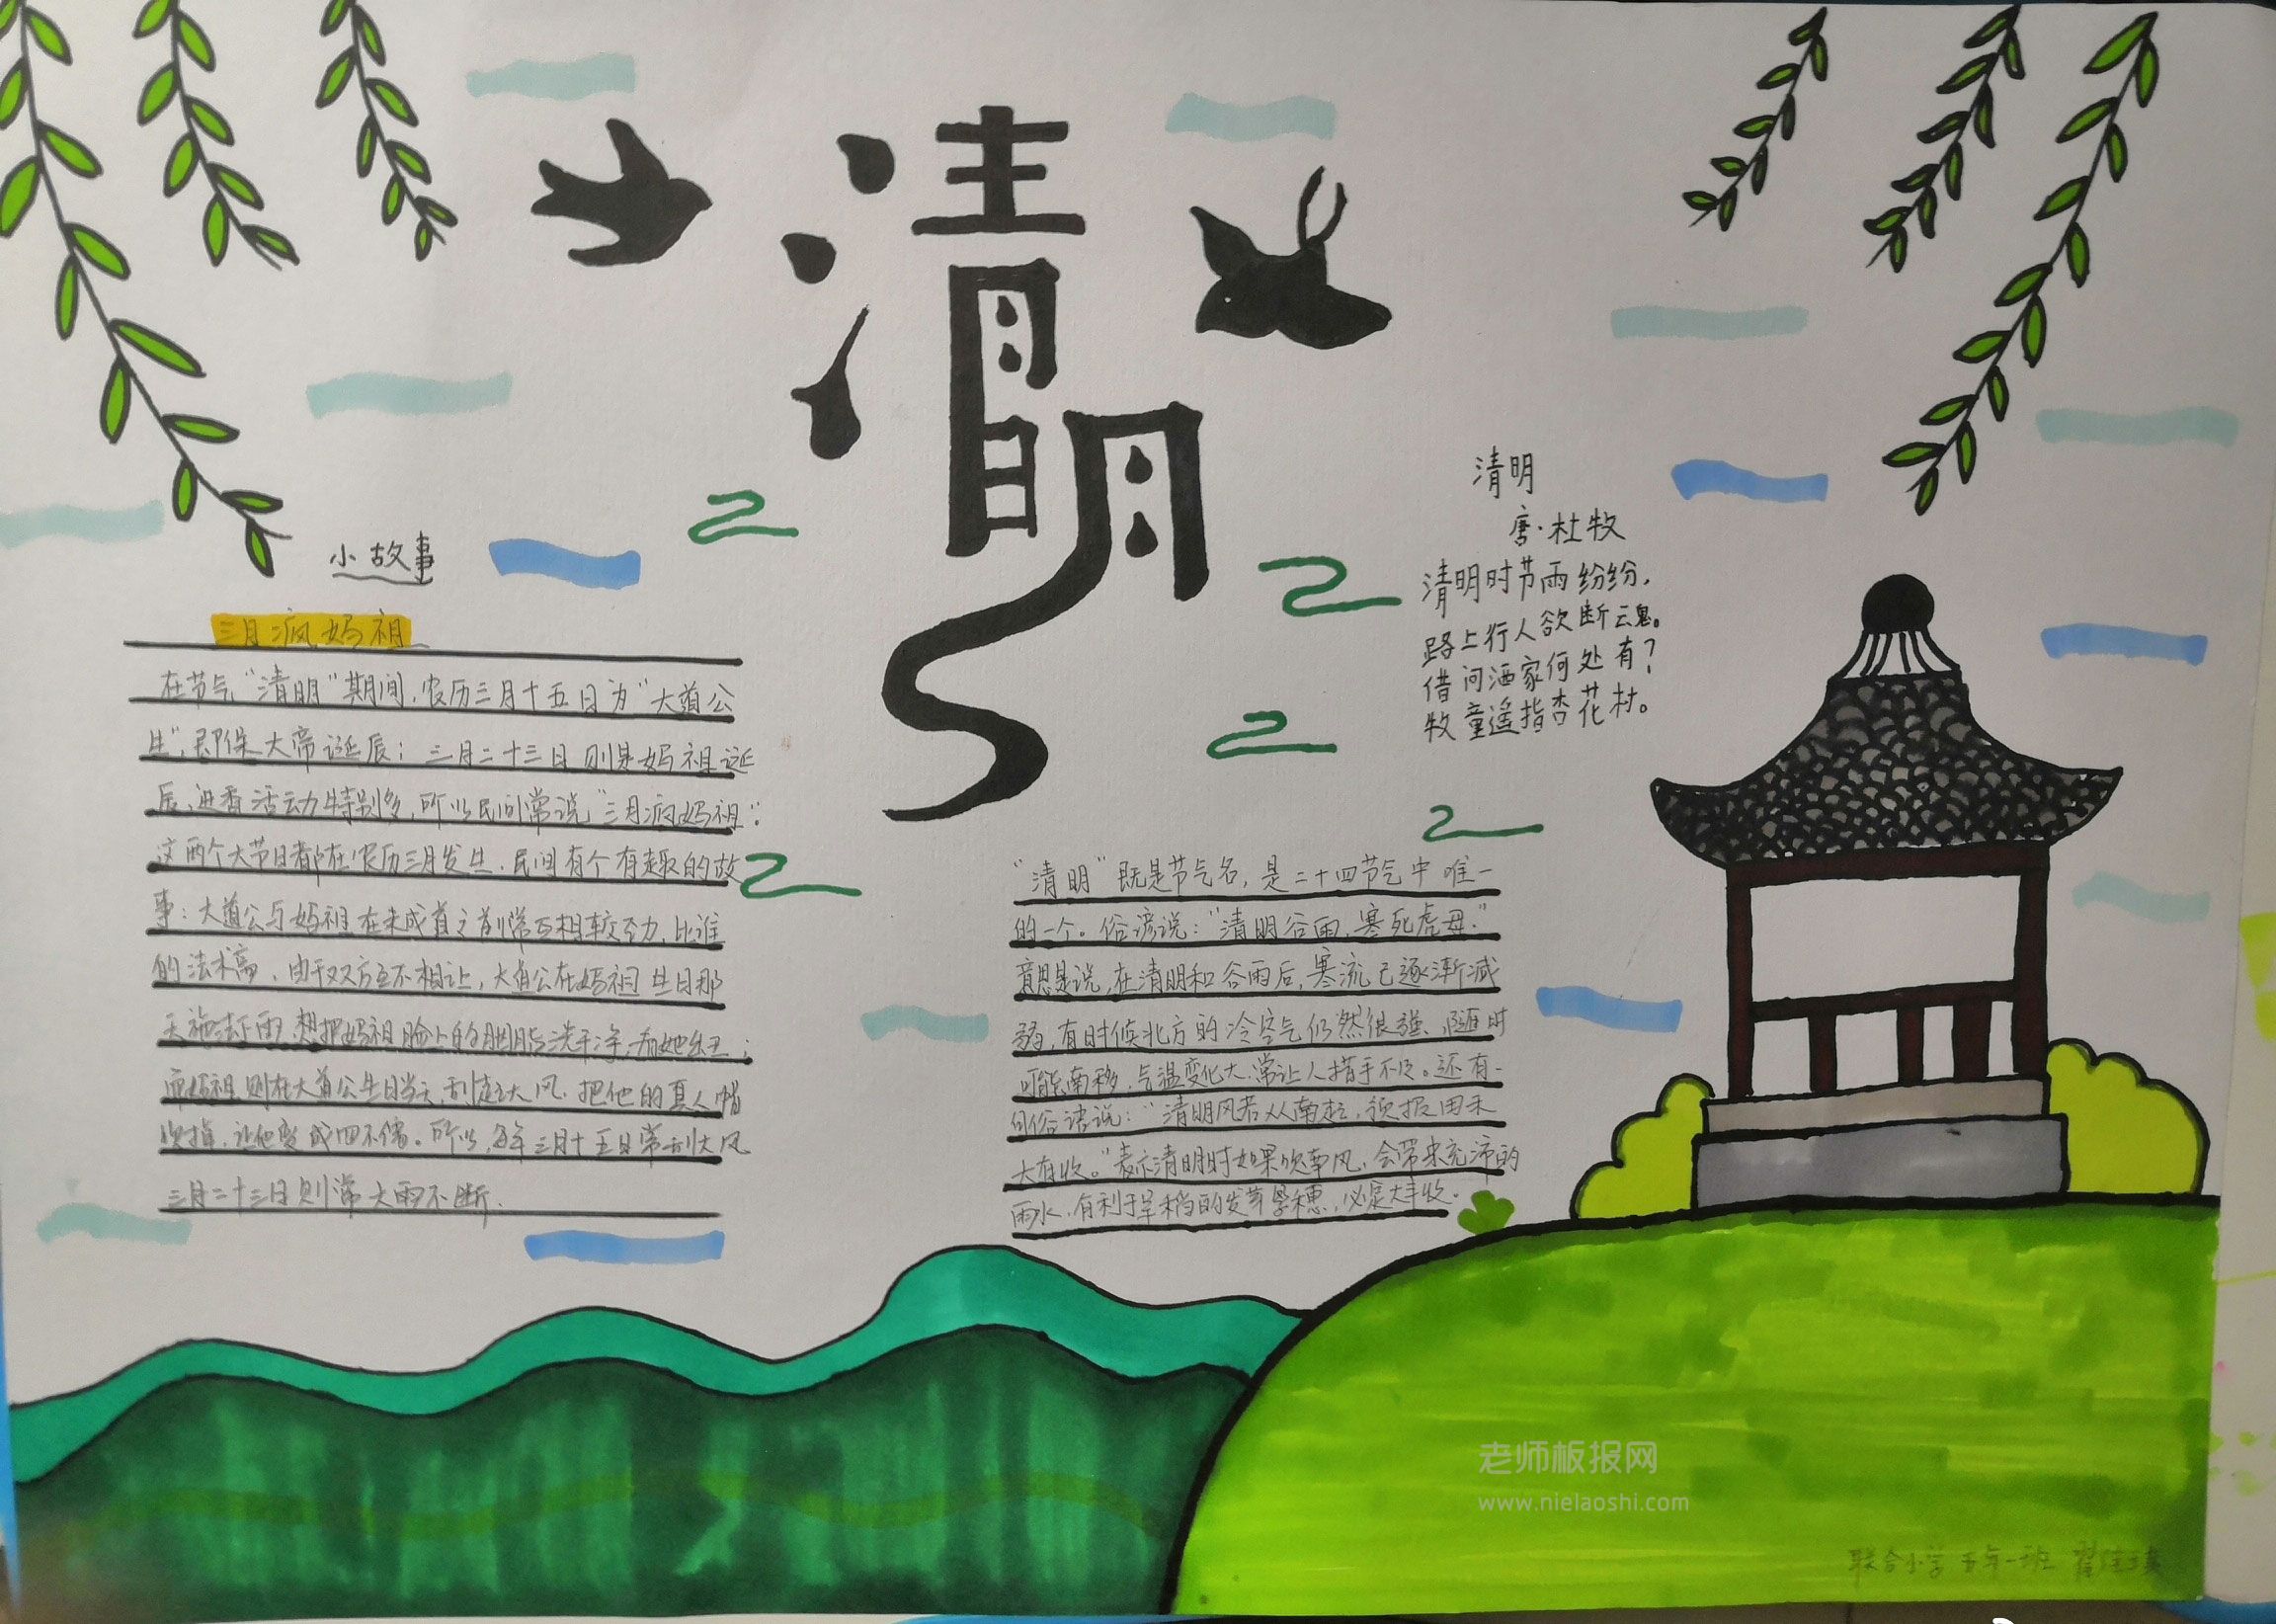 清明
小故事
三月疯妈祖
在节气“清明”期间，农历三月十五日为“大道公
生”，即保大帝诞辰；三月二十三日则是妈祖诞
辰，进香活动特别多，所以民间常说“三月疯妈祖”。
这两个大节日都在农历三月发生，民间有个有趣的故
事：大道公与妈祖在未成道之前常互相较劲，比谁
的法术高，由于双方互不相让，大道公在妈祖生日那
天施法下雨，想把妈祖脸上的胭脂洗干净，看她出丑；
而妈祖则在大道公生日当天，刮起大风，把他的真人帽
吹掉，让他变成四不像。所以，每年三月十五日常刮大风
三月二十三日则常大雨不断.
清明
唐·杜牧
清明时节雨纷纷，
路上行人欲断魂。
借问酒家何处有？
牧童遥指杏花村。
“清明”既是节气名，是二十四节气中唯一
的一个。俗谚说：“清明谷雨，寒死虎母.”
意思是说，在清明和谷雨后，寒流已逐渐减
弱，有时候北方的冷空气仍然很强、随时
可能南移，气温变化大，常让人措手不及。还有一
句俗谚说：“清明风若从南起，预报田禾
大有收。”表示清明时如果吹南风，会带来充沛的
雨水，有利于旱稻的发芽是穗，必是大丰收.
老师板报网
www.nielaoshi.com
联合小学 五年一班